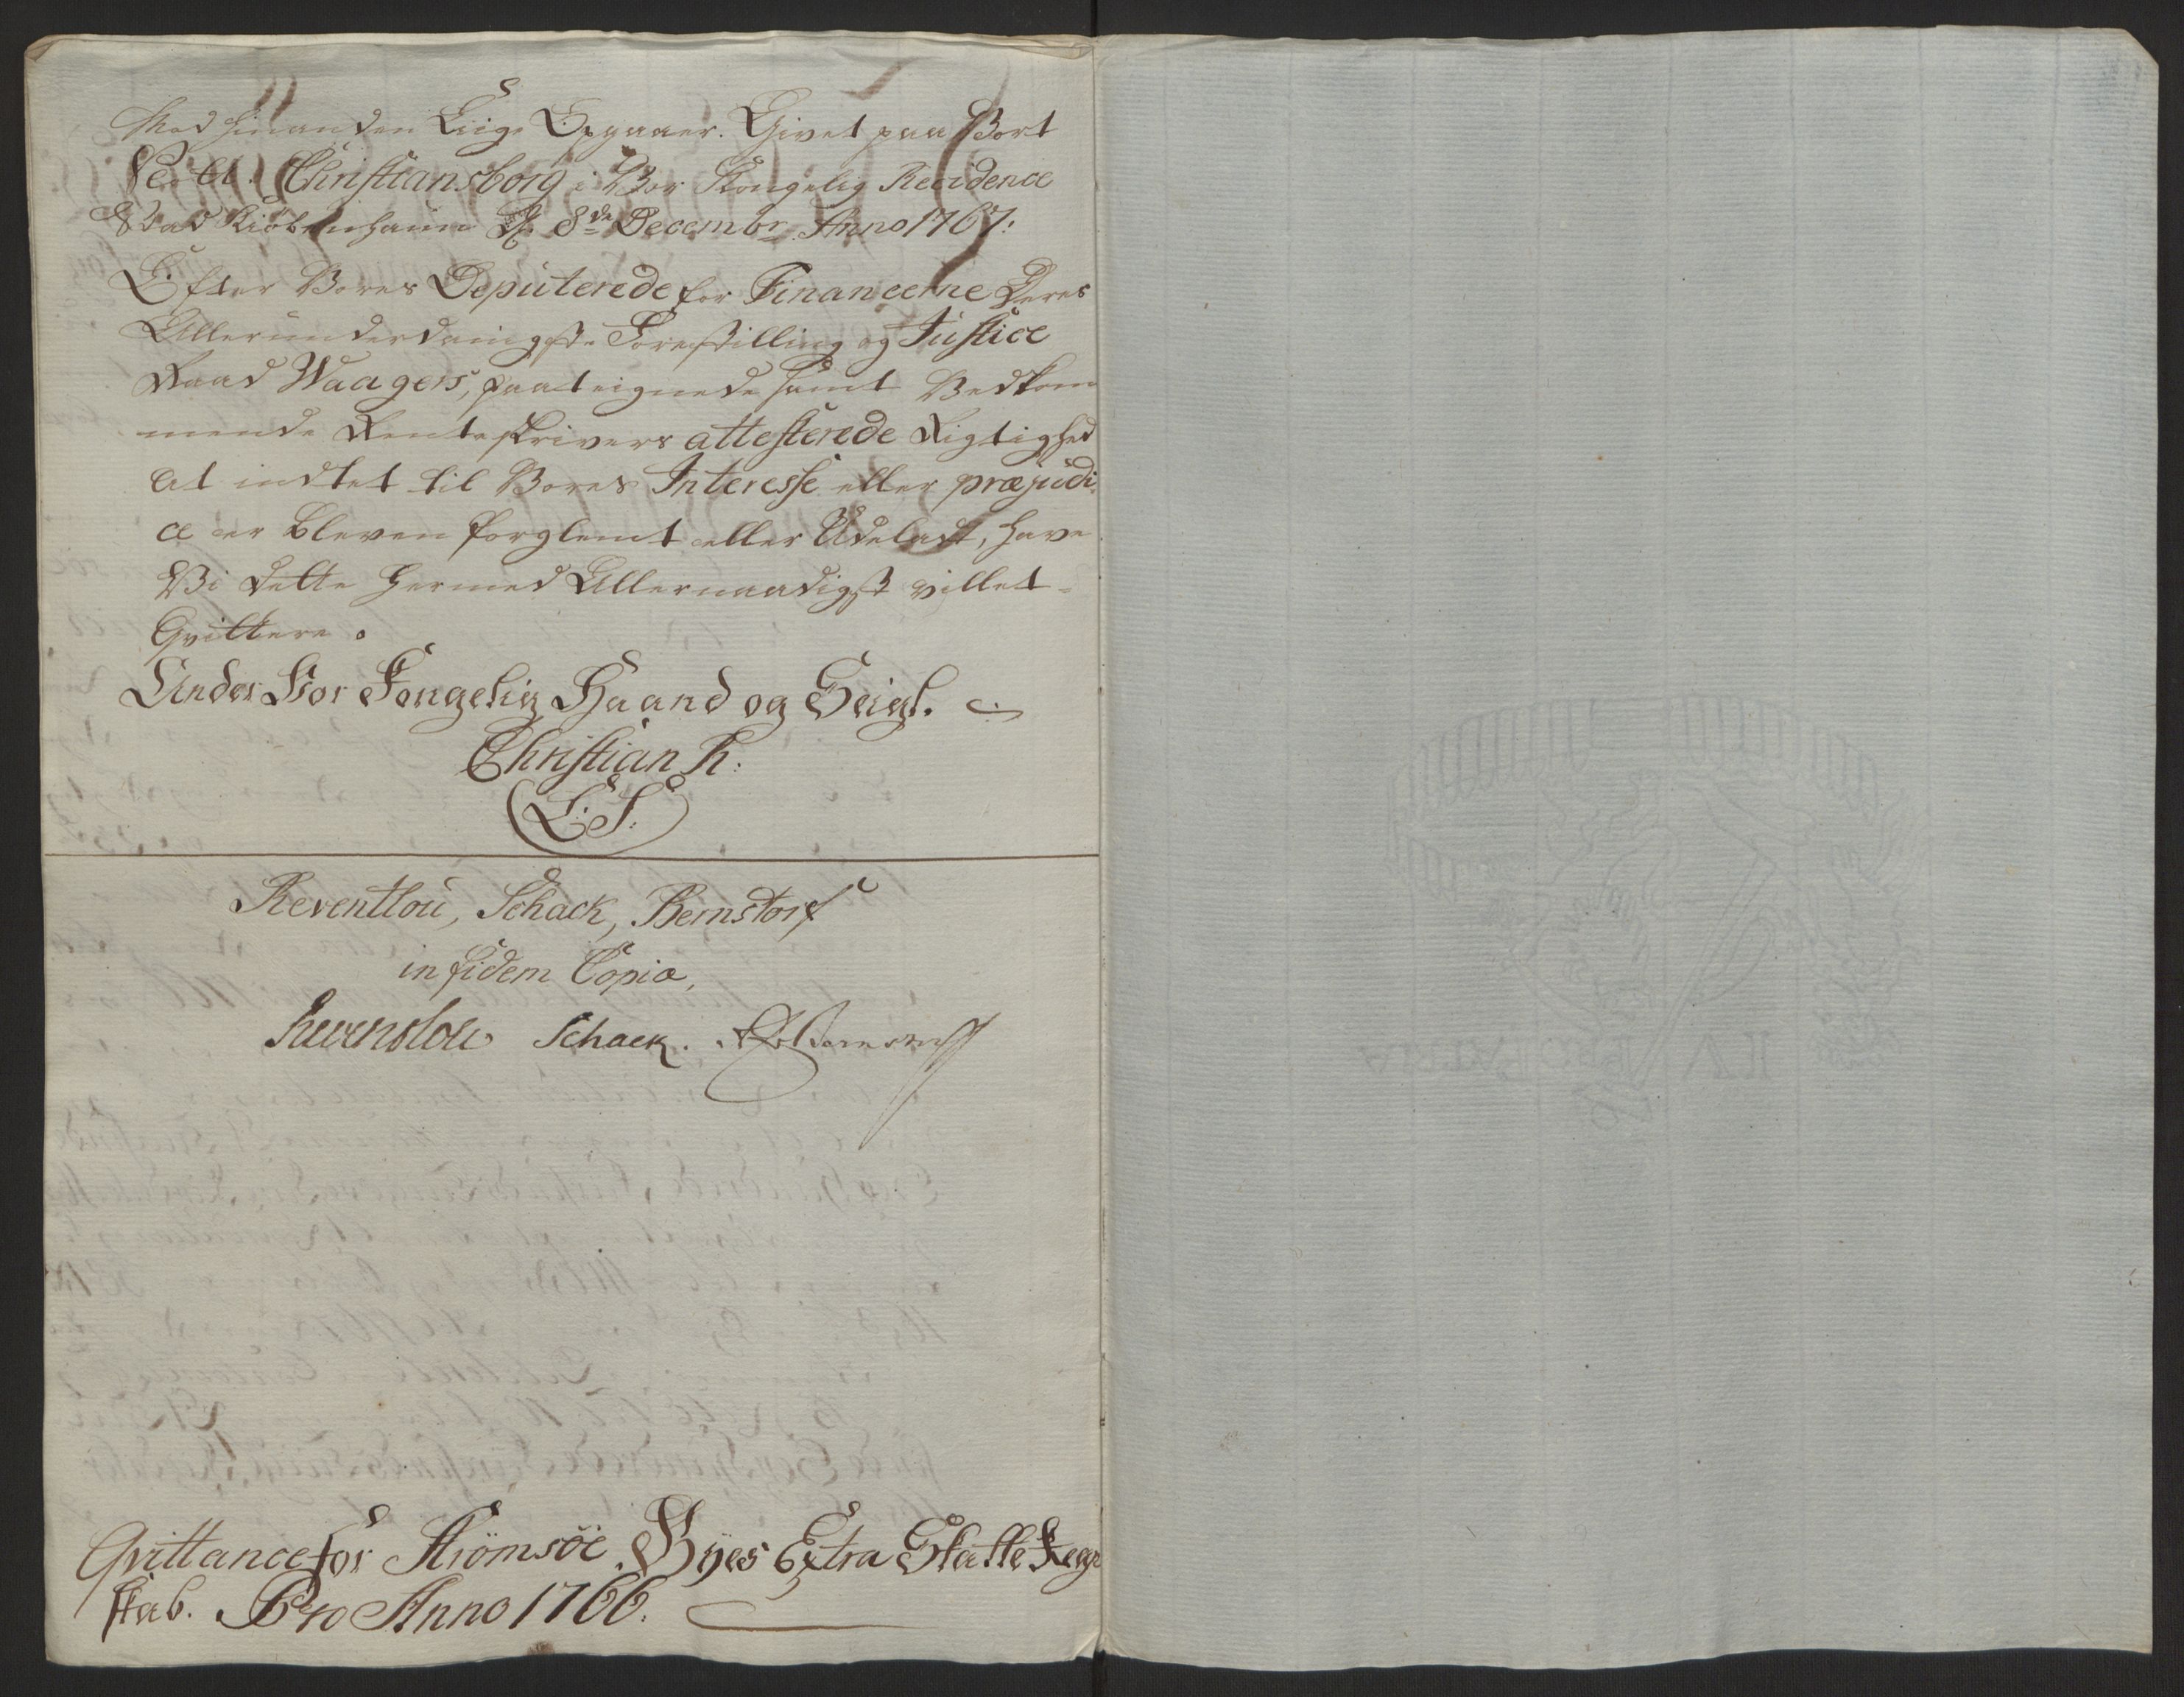 Med hinanden Liige Opgaaer. Givet paa Vort
Christiansborg i Vor Kongelig Recidence
Stad Kiöbenhavn D. 8de Decembr. Anno 1767:
Efter Vores Deputerede for Financerne Deres
Allerunderdanigste Forestilling og Justice
Raad Waagers, paategnede samt Vedkom
mende Renteskrivers attesterede Rigtighed
at indtet til Vores Interesse eller præjudi
ce er bleven forglemt eller Udeladt, have
Vi dette hermed Allernaadigst villet
Qvittere.
Under Vor Kongelig Haand og Seigl.
Christian R:
L.S.
Reventlou, Schack, Bernstorf
in fidem Copiæ,
Reventlou Schack.
Qvittance for Strömsöe Byes Extra Skatte Regn
skab. Pro Anno 1766.